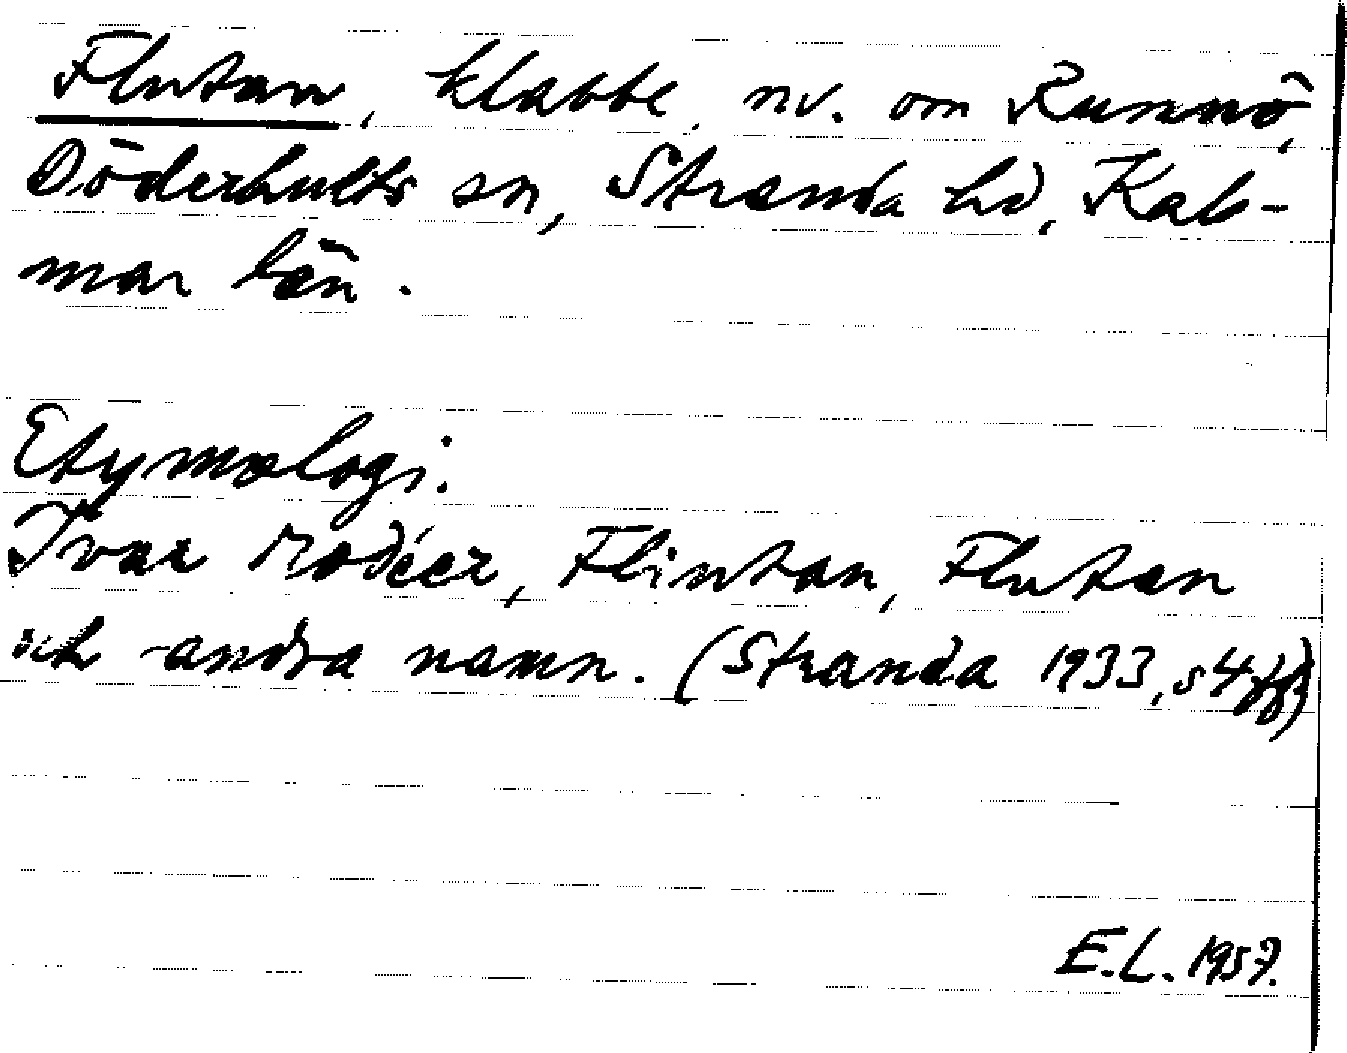 Flutan, klabbe, nv. om Runnö,
Döderhults sn, Stranda hd, Kal-
mar län.
Etymologi.
Ivar Modéer, Flintan, Flutan
och andra namn. (Stranda 1933, s 4 ff)
E.L. 1957.